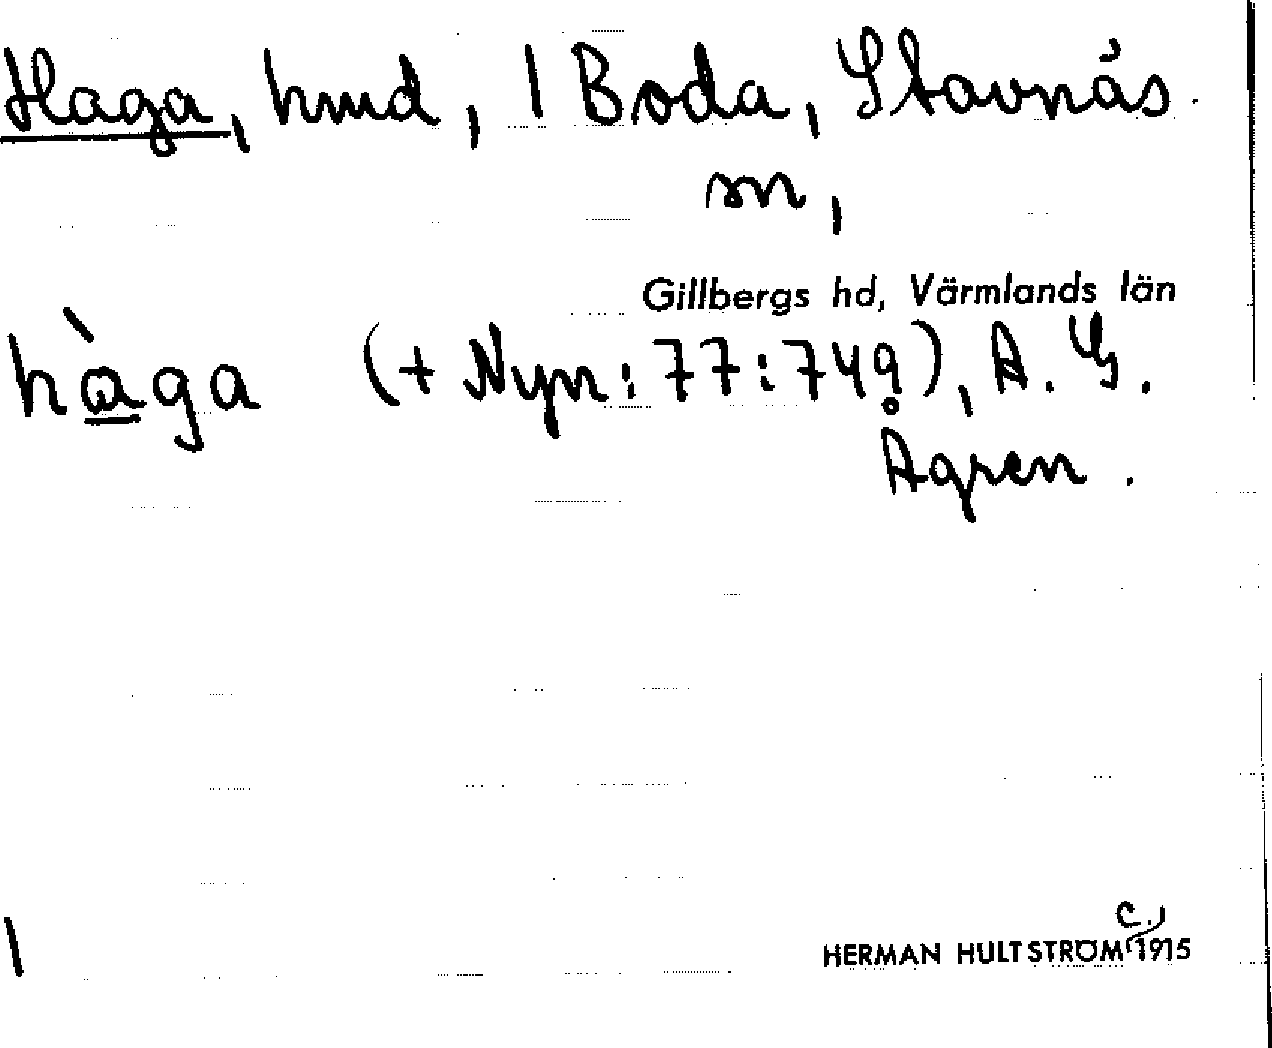 Haga, hmd, 1 Boda, Stavnäs
sn,
Gillbergs hd, Värmlands län
hàga (+ Nyn: 77:749), A. G.
Ågren.
1
HERMAN HULTSTRÖM c. 1915